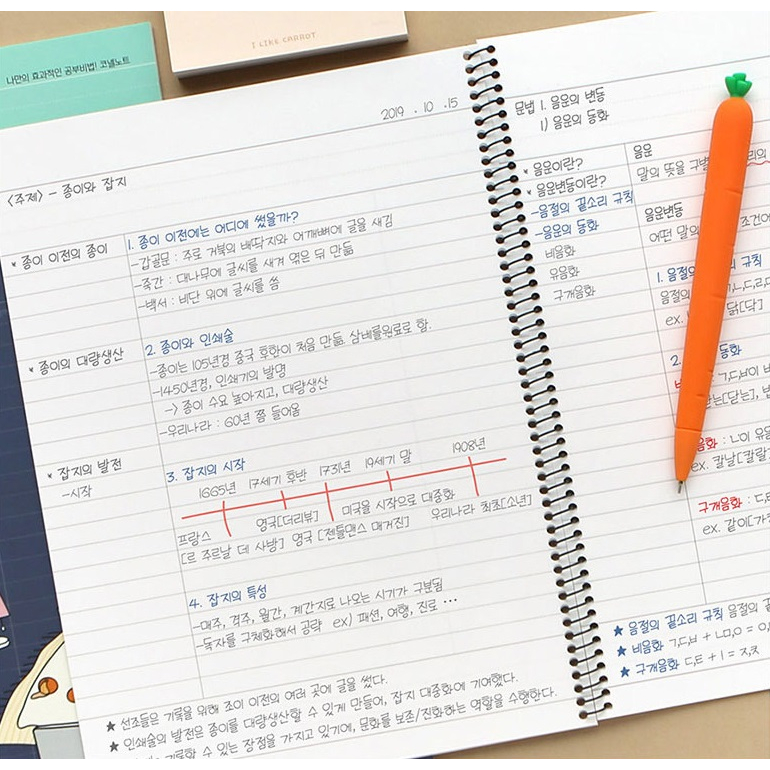 나만의 효과적인 공부비법! 코넬노트
I LIKE CARROT
2019 . 10 . 15
<주제> - 종이와 잡지
* 종이 이전의 종이
1. 종이 이전에는 어디에 썼을까?
-갑골문 : 주로 거북의 배딱지와 어깨뼈에 글을 새김
-죽간 : 대나무에 글씨를 새겨 엮은 뒤 만듦
-백서 : 비단 위에 글씨를 씀
* 종이의 대량생산
2. 종이와 인쇄술
-종이는 105년경 중국 후한이 처음 만듦 삼베를원료로 함.
-1450년경, 인쇄기의 발명
-> 종이 수요 높아지고, 대량생산
-우리나라 : 60년 쯤 들어옴
* 잡지의 발전
-시작
3. 잡지의 시작
1665년 17세기 후반 1731년 19세기 말 1908년
프랑스 영국[더리뷰] 미국을 시작으로 대중화
[르 주르날 데 사방] 영국 [젠틀맨스 매거진] 우리나라 최초[소년]
4. 잡지의 특성
-매주, 격주, 월간, 계간지로 나오는 시기가 구분됨
-독자를 구체화해서 공략 ex) 패션, 여행, 진로 …
★ 선조들은 기록을 위해 조이 이전의 여러 곳에 글을 썼다.
★ 인쇄술의 발전은 종이를 대량생산할 수 있게 만들어, 잡지 대중화에 기여했다.
기록할 수 있는 장점을 가지고 있기에, 문화를 보존/진화하는 역할을 수행한다.
문법 1. 음운의 변동
1) 음운의 동화
* 음운이란?
* 음운변동이란?
-음절의 끝소리 규칙
-음운의 동화
비음화
유음화
구개음화
음운
말의 뜻을 구별
음운변동
어떤 말의 조건에
1. 음절의 규칙
음절의
ex. 닭[닥]
2. 동화
음화 : ㄴ이 유음
ex. 칼날[칼랄
구개음화 : ㄷ,
ex. 같이[가치
★ 음절의 끝소리 규칙 음절의 끝
★ 비음화 ㄱ,ㄷ,ㅂ + ㄴㅁ,ㅇ = ㅇ,
★ 구개음화 ㄷ,ㅌ + ㅣ = ㅈ,ㅊ